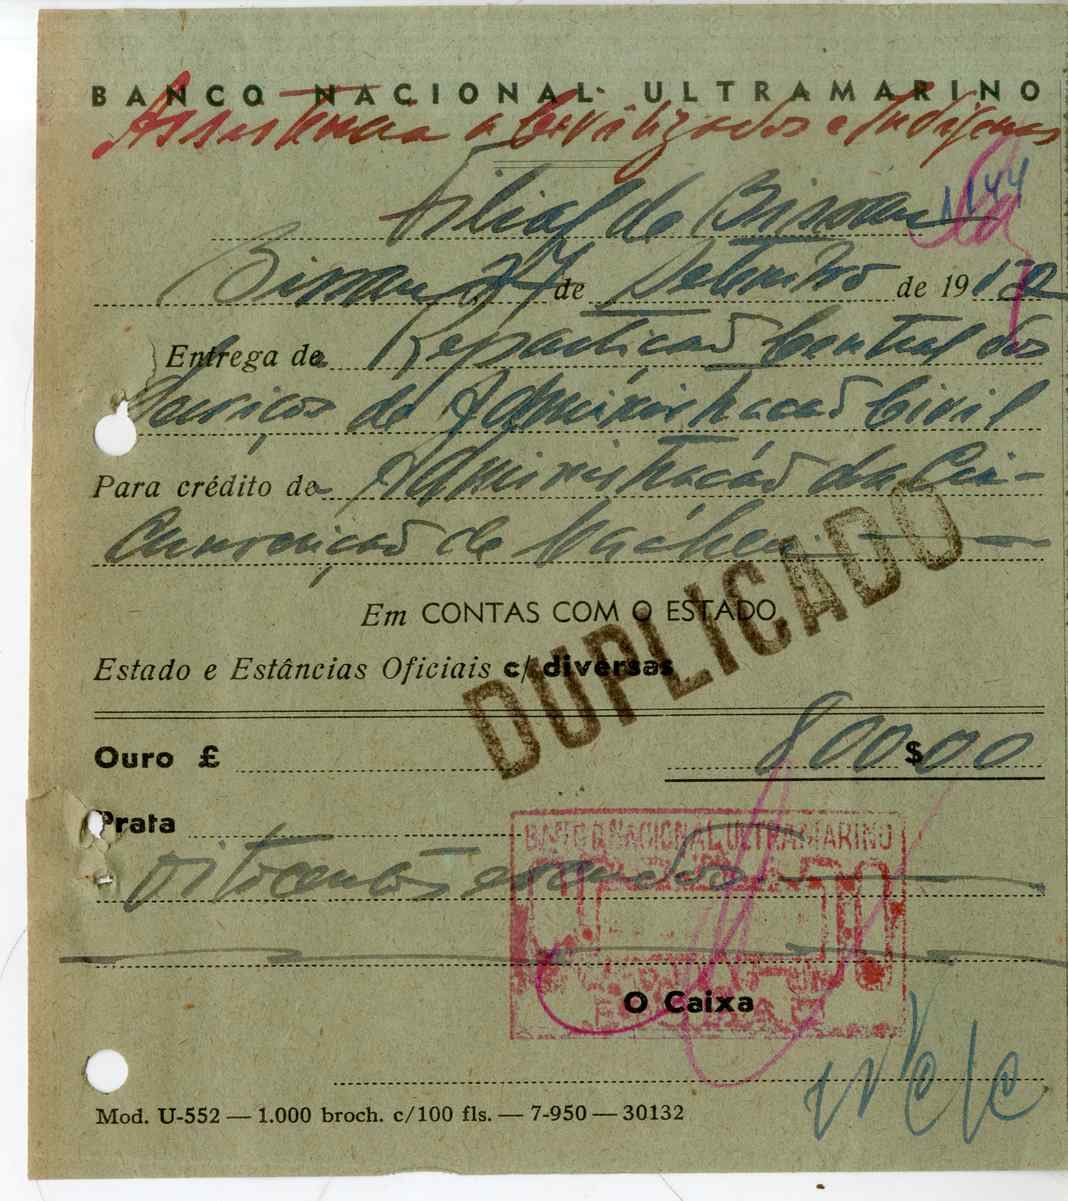 BANCO NACIONAL ULTRAMARINO
Assistencia a Civilizados e Indígenas
1144
Filial de Bissau
Bissau 27 de Setembro de 19
Entrega de Repartição Central dos
Serviços de Administração Civil
Para crédito de Administração da Cir-
cunscrição de
Em CONTAS COM O ESTADO
Estado e Estâncias Oficiais c/ diversas
DUPLICADO
Ouro £ 800$00
Prata
BANCO NACIONAL ULTRAMARINO
oitocentos escudos
O Caixa
Mod. U-552 — 1.000 broch. c/100 fls. — 7-950 — 30132